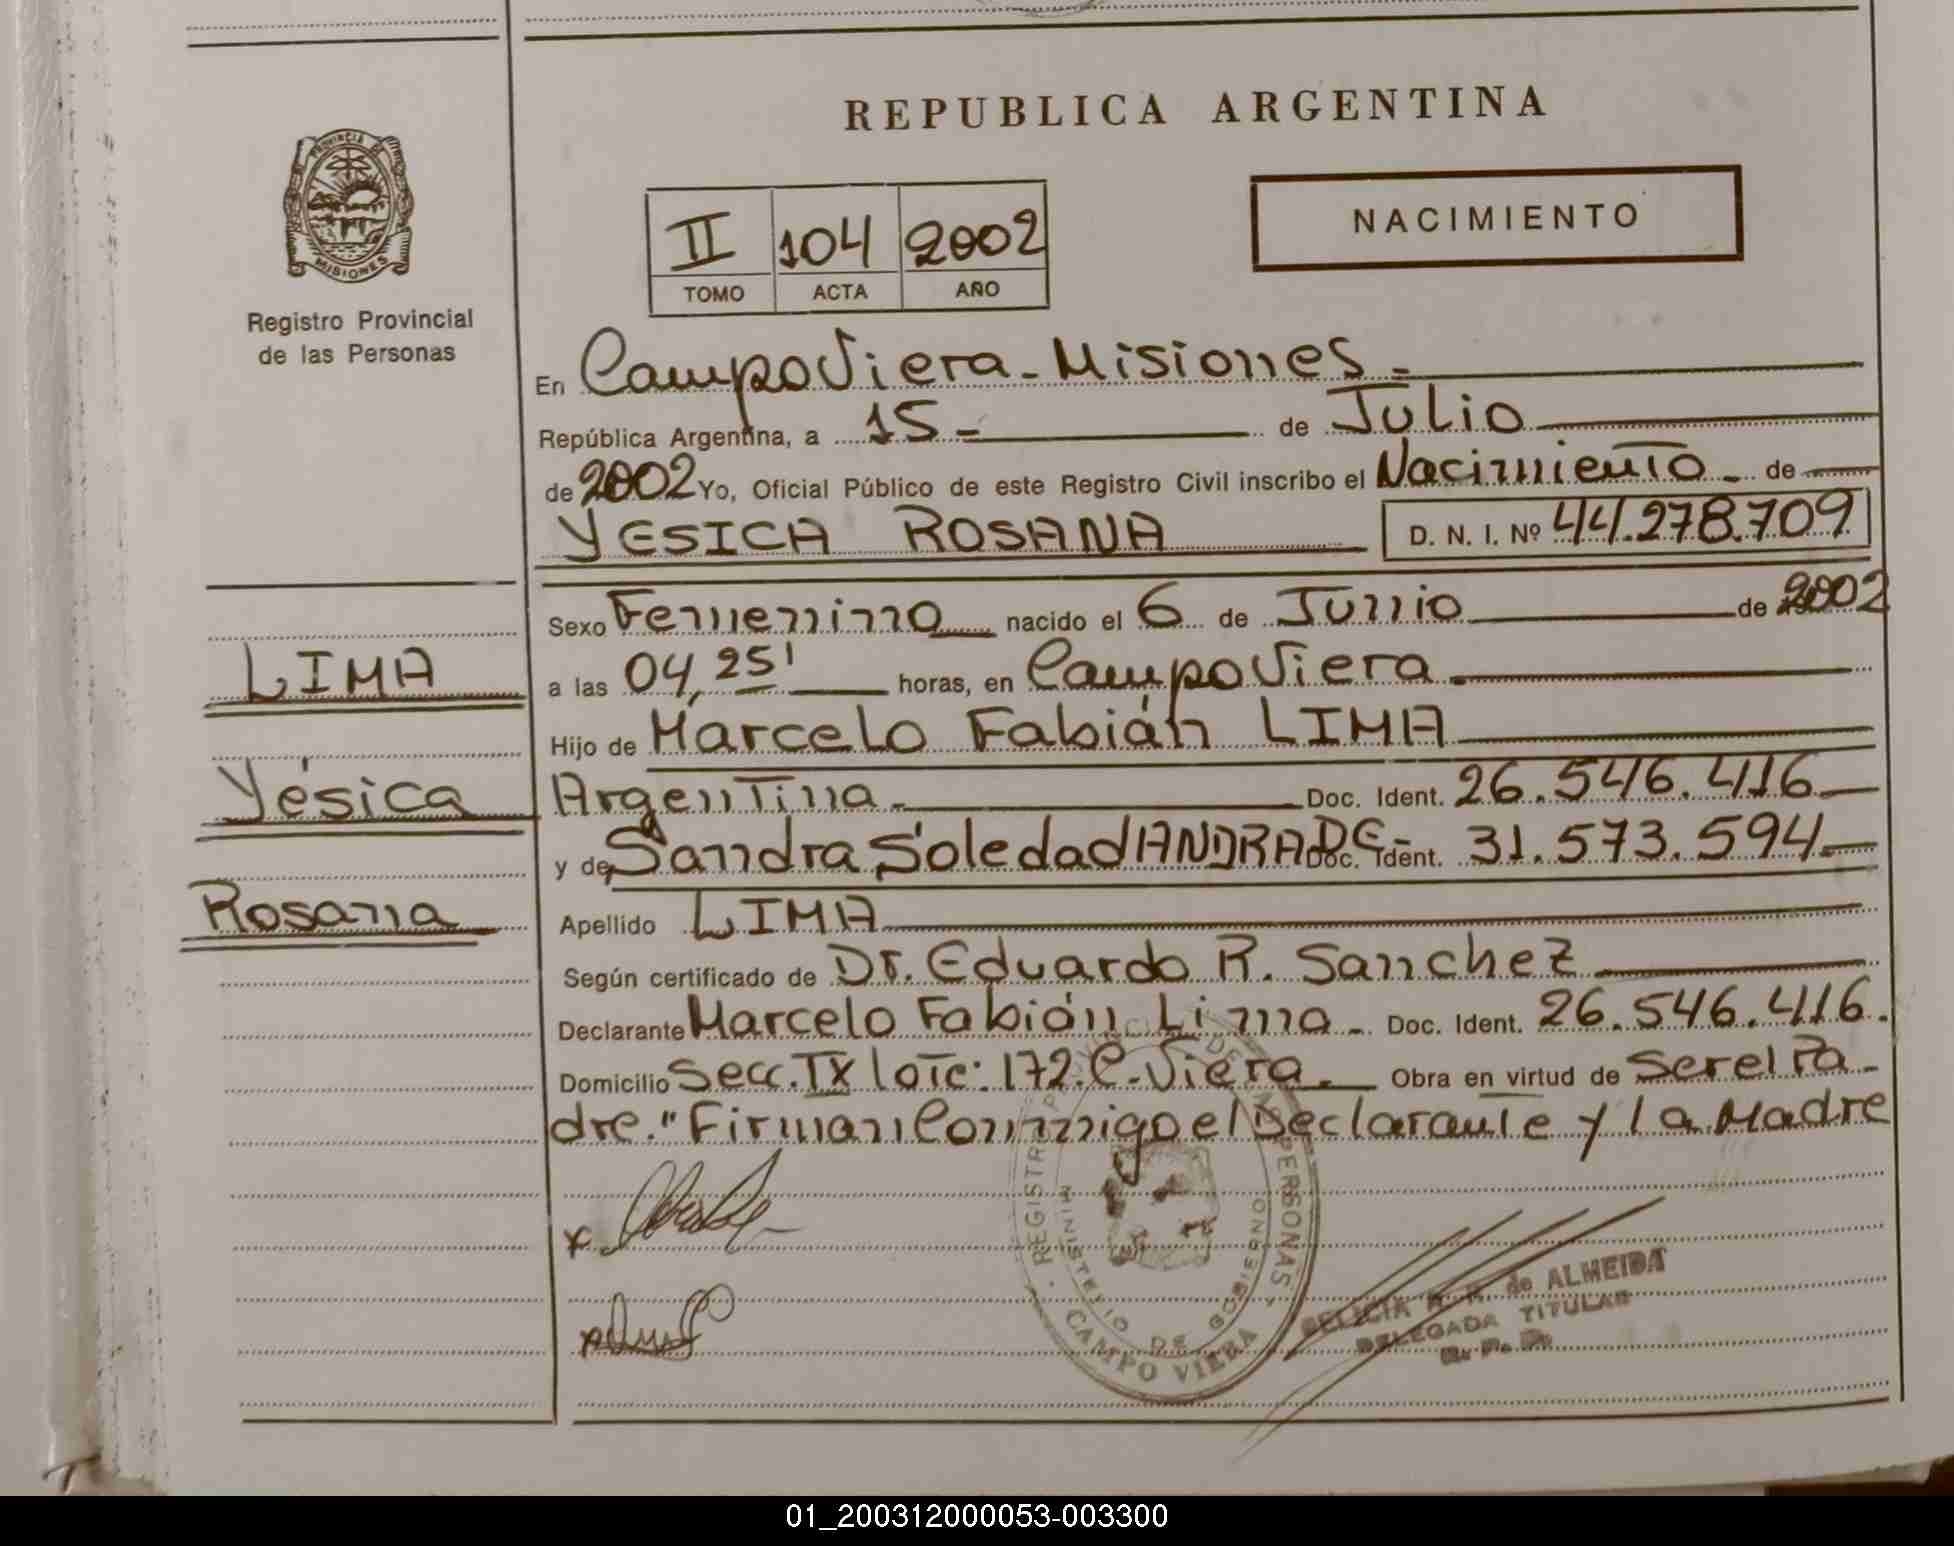 REPUBLICA ARGENTINA
PROVINCIA DE
MISIONES
Registro Provincial
de las Personas
II 104 2002
TOMO ACTA AÑO
NACIMIENTO
En Campo Viera - Misiones.=
República Argentina, a 15- de Julio
de 2002 Yo, Oficial Público de este Registro Civil inscribo el Nacimiento - de
YESICA ROSANA D. N. I. Nº 44.278.709
Sexo Femenino nacido el 6 de Junio de 2002
a las 04,25' horas, en Campo Viera.
Hijo de Marcelo Fabián LIMA
Argentina.- Doc. Ident. 26.546.416
y de Sandra Soledad ANDRADE Doc. Ident. 31.573.594
Apellido LIMA
Según certificado de Dr. Eduardo R. Sanchez
Declarante Marcelo Fabián Lima - Doc. Ident. 26.546.416.
Domicilio Secc. IX lote: 172. C. Viera. Obra en virtud de ser el Pa-
dre." Firman Conmigo el Declarante y la Madre
LIMA
Yésica
Rosana
REGISTRO PROVINCIAL DE LAS PERSONAS
MINISTERIO DE GOBIERNO
CAMPO VIERA
de ALMEIDA
DELEGADA TITULAR
R. P. P.
01_200312000053-003300